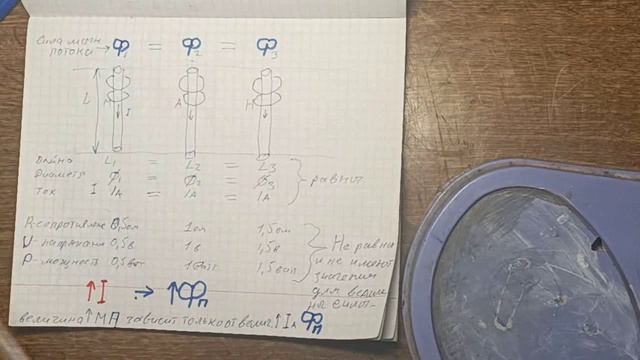 Сила магн потока → Ф₁ = Ф₂ = Ф₃
L I
Длина L₁ = L₂ = L₃
Диаметр ∅₁ = ∅₂ = ∅₃ равны
Ток I 1А = 1А = 1А
R-сопротивление 0,5ом 1ом 1,5ом
U-напряжение 0,5в 1в 1,5в
P-мощность 0,5ват 1ват 1,5ват
Не равны
и не имеют
значения
для
на
↑I → ↑Фп
величина ↑ зависит только от велич. ↑I Фп